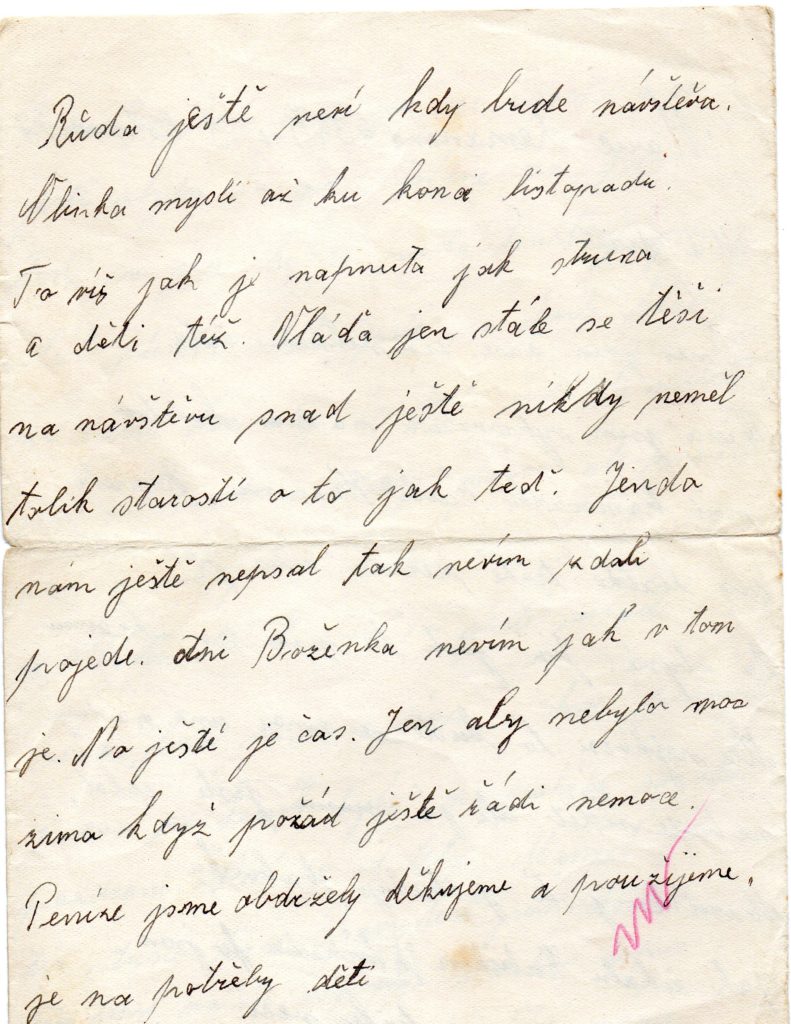 Růda ještě neví kdy bude návštěva.
Vlinka myslí až ku konci listopadu.
To víš jak je napnuta jak struna
a děti též. Vláďa jen stále se těší
na návštěvu snad ještě nikdy neměl
tolik starostí o to jak teď. Jenda
nám ještě nepsal tak nevím zdali
projede. ani Boženka nevím jak v tom
je. No ještě je čas. Jen aby nebyla moc
zima když pořád ještě řádi nemoce.
Peníze jsme obdržely děkujeme a použijeme.
je na potřeby děti